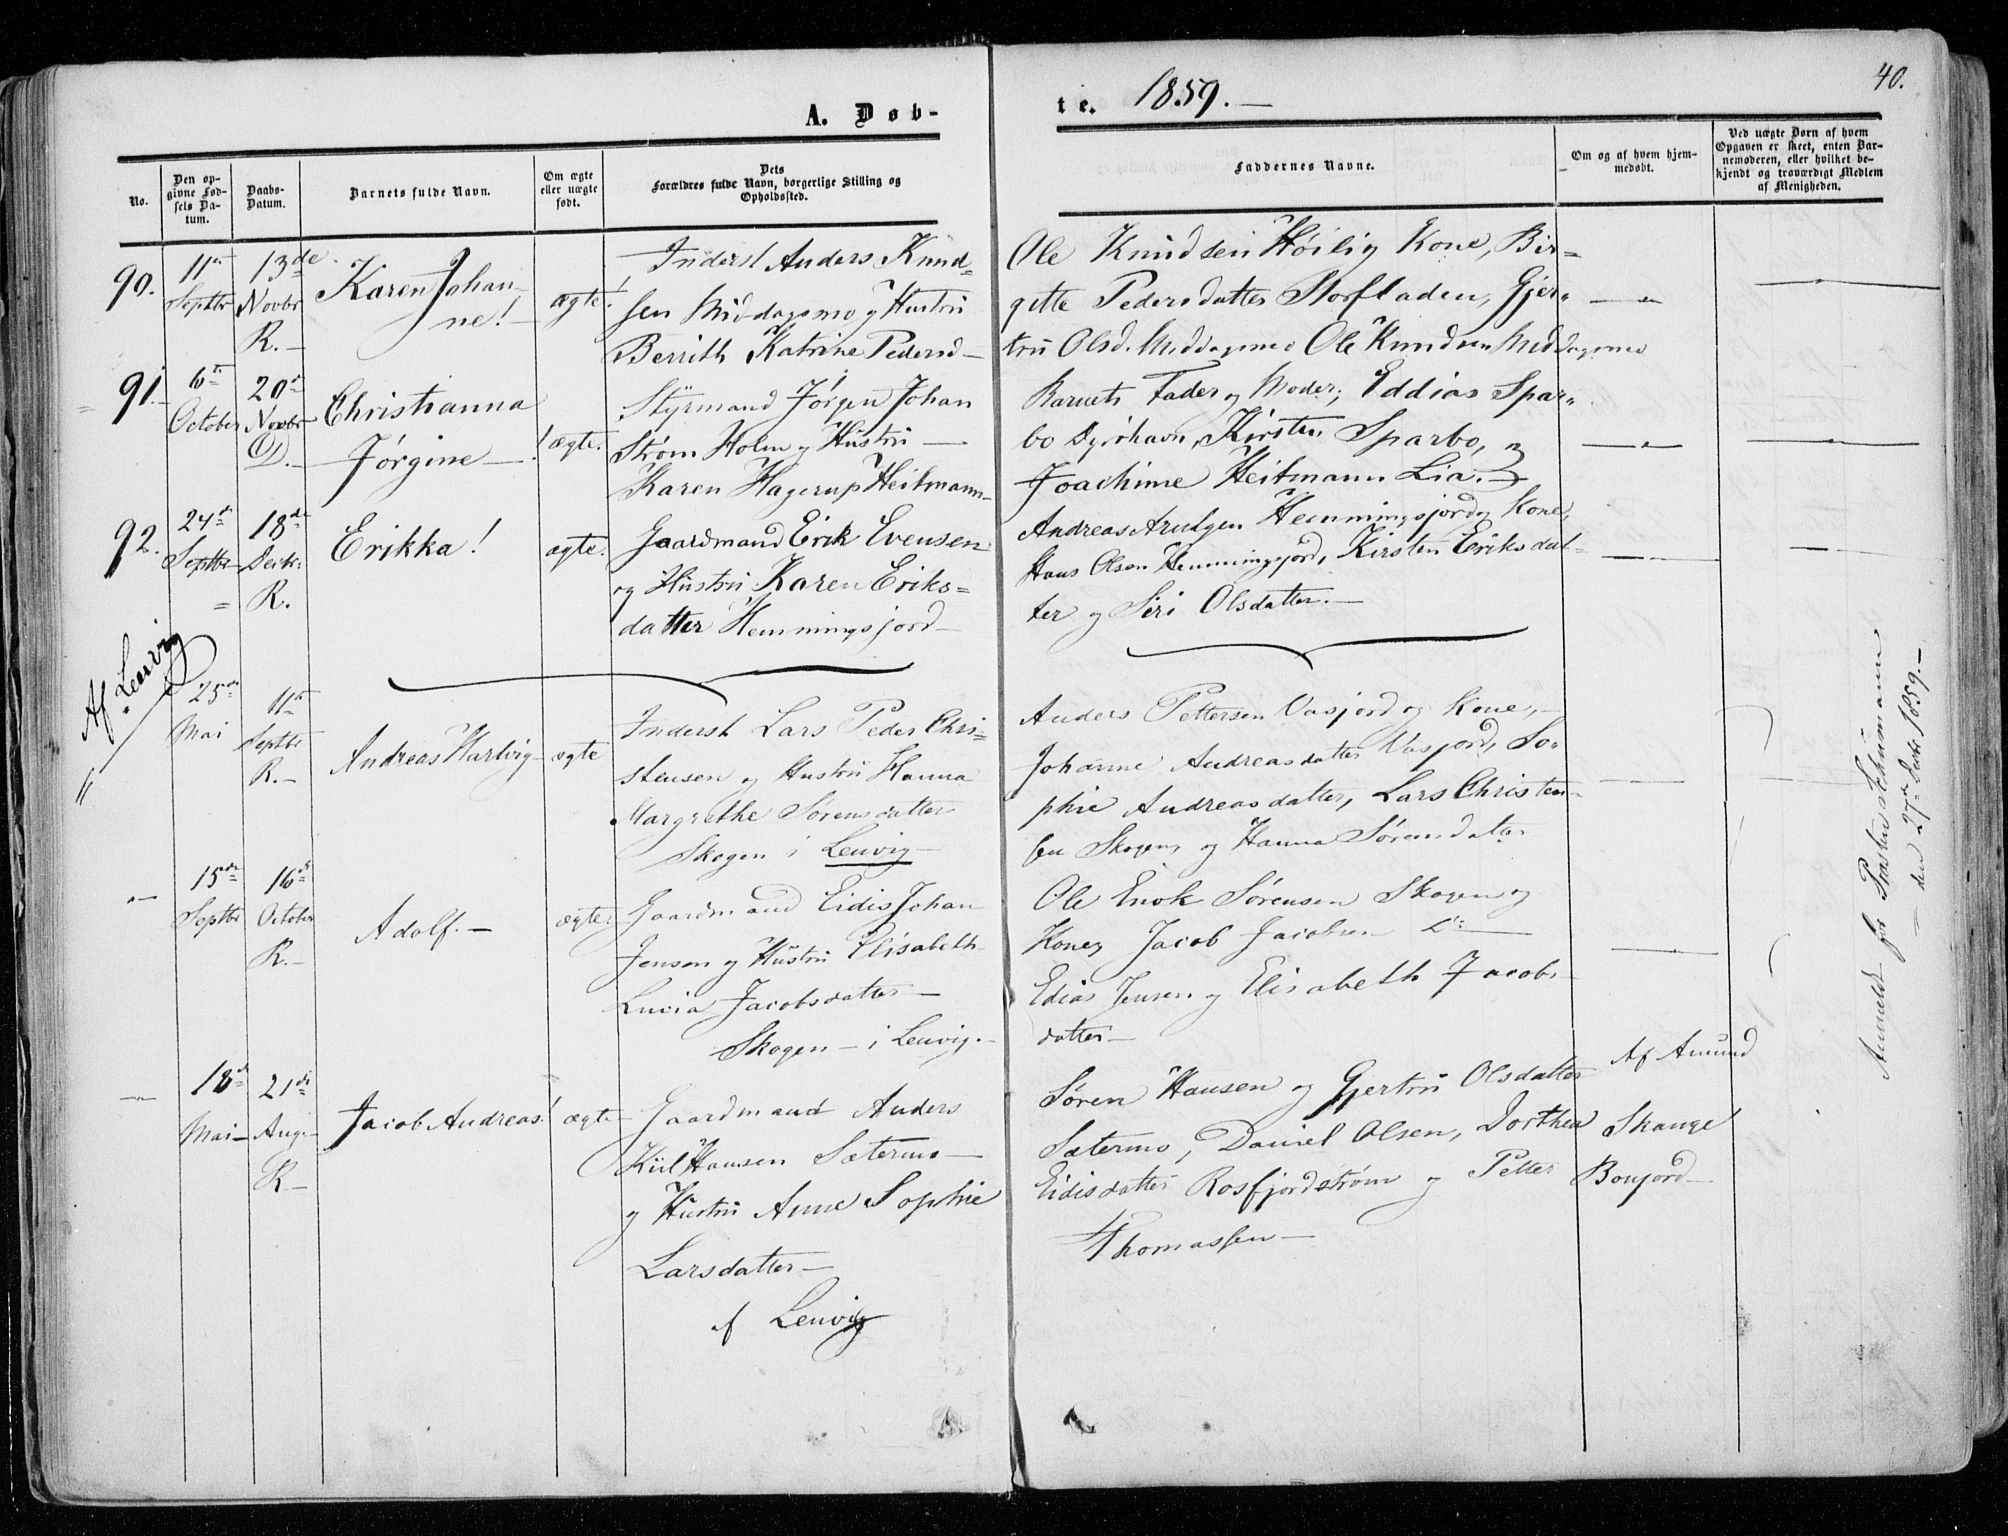 A. Døb-
te. 1859.—
40.
No.
Den op-
givne Fød-
sels Da-
tum.
Daabs-
Datum.
Barnets fulde Navn.
Om ægte
eller uægte
født.
Dets
Forældres fulde Navn, borgerlige Stilling og
Opholdssted.
Faddernes Navne.
Om og af hvem hjem-
medøbt.
Ved uægte Børn af hvem
Opgaven er skeet, enten Bar-
nemoderen, eller hvilket be-
kjendt og troværdigt Medlem
af Menigheden.
90.
11te
Septbr
13de
Novbr
R.—
Karen Johan-
ne!
ægte!
Inderst Anders Knud=
sen Middagsmo og Hustru
Berrith Katrine Pedersd—
Ole Knudsen Høilig Kone, Bir=
gitte Pedersdatter Storfladen, Gjer-
tru Olsd. Middagsmo Ole Knudsen Middagsmo
91.
6te
October
20de
Novbr
D.—
Christianna
Jørgine—!
ægte.
Styrmand Jørgen Johan
Strøm Holm og Hustru —
Karen Hagerup Heitmann—
Barnets Fader og Moder; Eddias Spar-
bo Dyrøhavn, Kirsten Sparbo, og
Joachime Heitmann Lia.—
92.
24de
Septbr
18de
Decbr
R.
Erikka!
ægte.
Gaardmand Erik Evensen
og Hustru Karen Eriks=
datter Hemmingsjord—
Andreas Hemmingsjord og Kone,
Hans Olsen Hemmingsjord, Kirsten Eriksdat-
ter og Siri Olsdatter.—
Af Lenvig
25de
Mai
11te
Septbr
R.—
Andreas Hartvig—
ægte
Inderst Lars Peder Chri=
stensen og Hustru Hanna
Margrethe Sørensdatter
Skogen i Lenvig—
Anders Pettersen Vasjord og Kone,—
Johanne Andreasdatter Vasjord, So-
phie Andreasdatter, Lars Christen-
sen Skogen, og Hanna Sørensdatter
15de
Septbr
16de
October
R.—
Adolf.—
ægte.
Gaardmand Eidis Johan
Jensen og Hustru Elisabeth
Lucia Jacobsdatter—
Skogen — i Lenvig.—
Ole Enok Sørensen Skogen og
Kone, Jacob Jacobsen
Edias Jensen og Elisabeth Jacobs-
datter—
18de
Mai—
21de
Aug.
R—
Jacob Andreas!
ægte—
Gaardmand Anders
Kiil Hansen Sætermo—
og Hustru Anne Sophie
Larsdatter—
af Lenvig
Søren Hansen og Gjertru Olsdatter
Sætermo, Daniel Olsen, Dorthea
Eidisdatter Rosfjordstrøm og Petter
Thomassen—
Af Amund
Skange
Bonjord—
Anmeldt for Præsten Schumann
— den 27de Decbr 1859.—